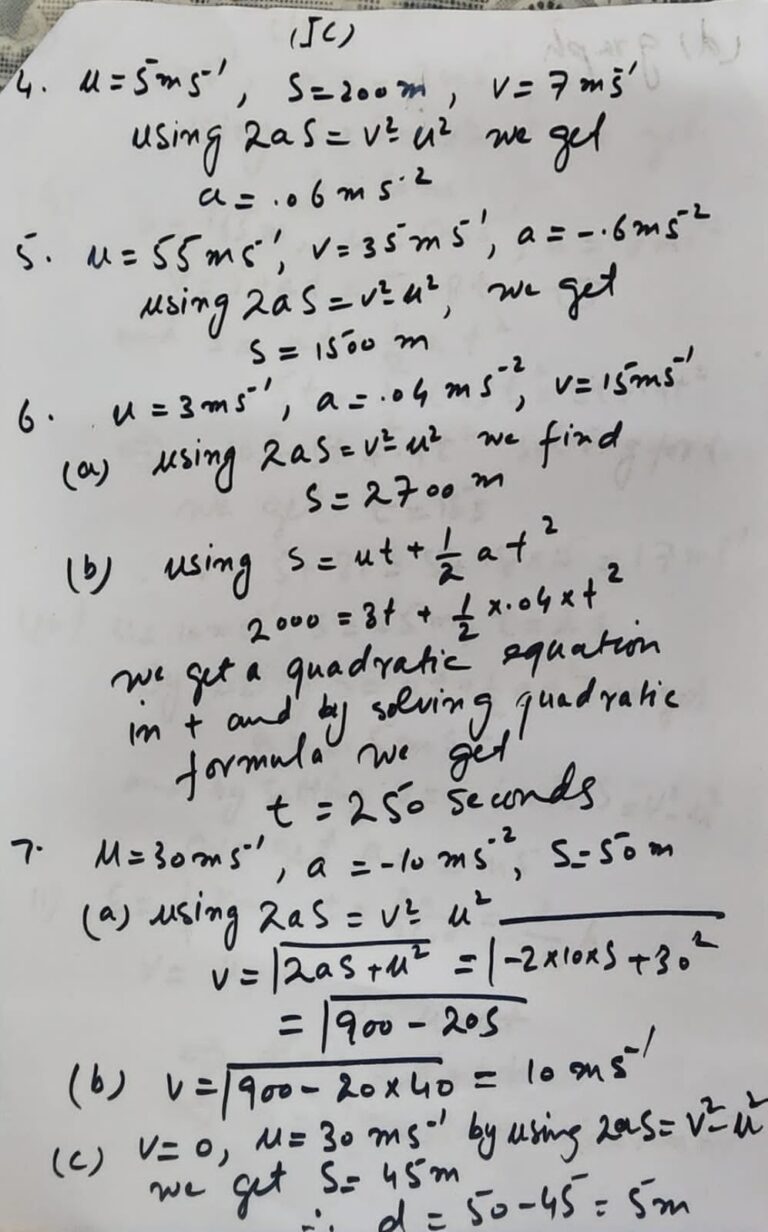 (JC)
4. u = 5 ms⁻¹, S = 200 m, v = 7 ms⁻¹
using 2aS = v² - u² we get
a = .06 m s⁻²
5. u = 55 ms⁻¹, v = 35 ms⁻¹, a = -.6 ms⁻²
using 2aS = v² - u², we get
S = 1500 m
6. u = 3 ms⁻¹, a = .04 ms⁻², v = 15 ms⁻¹
(a) using 2aS = v² - u² we find
S = 2700 m
(b) using S = ut + 1/2 at²
2000 = 3t + 1/2 × .04 × t²
we get a quadratic equation
in t and by solving quadratic
formula we get
t = 250 seconds
7. u = 30 ms⁻¹, a = -10 ms⁻², S = 50 m
(a) using 2aS = v² - u²
v = √(2aS + u²) = √(-2×10×S + 30²)
= √(900 - 20S)
(b) v = √(900 - 20×40) = 10 ms⁻¹
(c) v = 0, u = 30 ms⁻¹ by using 2aS = v² - u²
we get S = 45 m
∴ d = 50 - 45 = 5 m